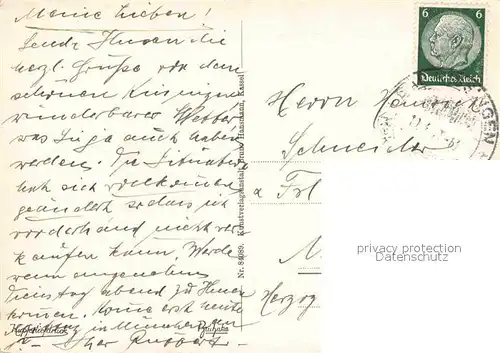 Meine Lieben!
Sende Ihnen die
herzl. Grüße von dem
schönen Kissingen
wunderbares Wetter
was Sie ja auch haben
werden. Die Situation
hat sich vollkommen
geändert sodass ich
vorderhand nicht ver
kaufen kann. Werde
wenn angenehm
Dienstag abend zu Ihnen
kommen. Komme erst heute
in München an
Ihr
Kupfertiefdruck
Nr. 84089. Kunstverlagsanstalt Bruno Hansmann, Kassel
6 6
Deutsches Reich
Herrn
Schneider
a Frl
Herzog
privacy protection
Datenschutz